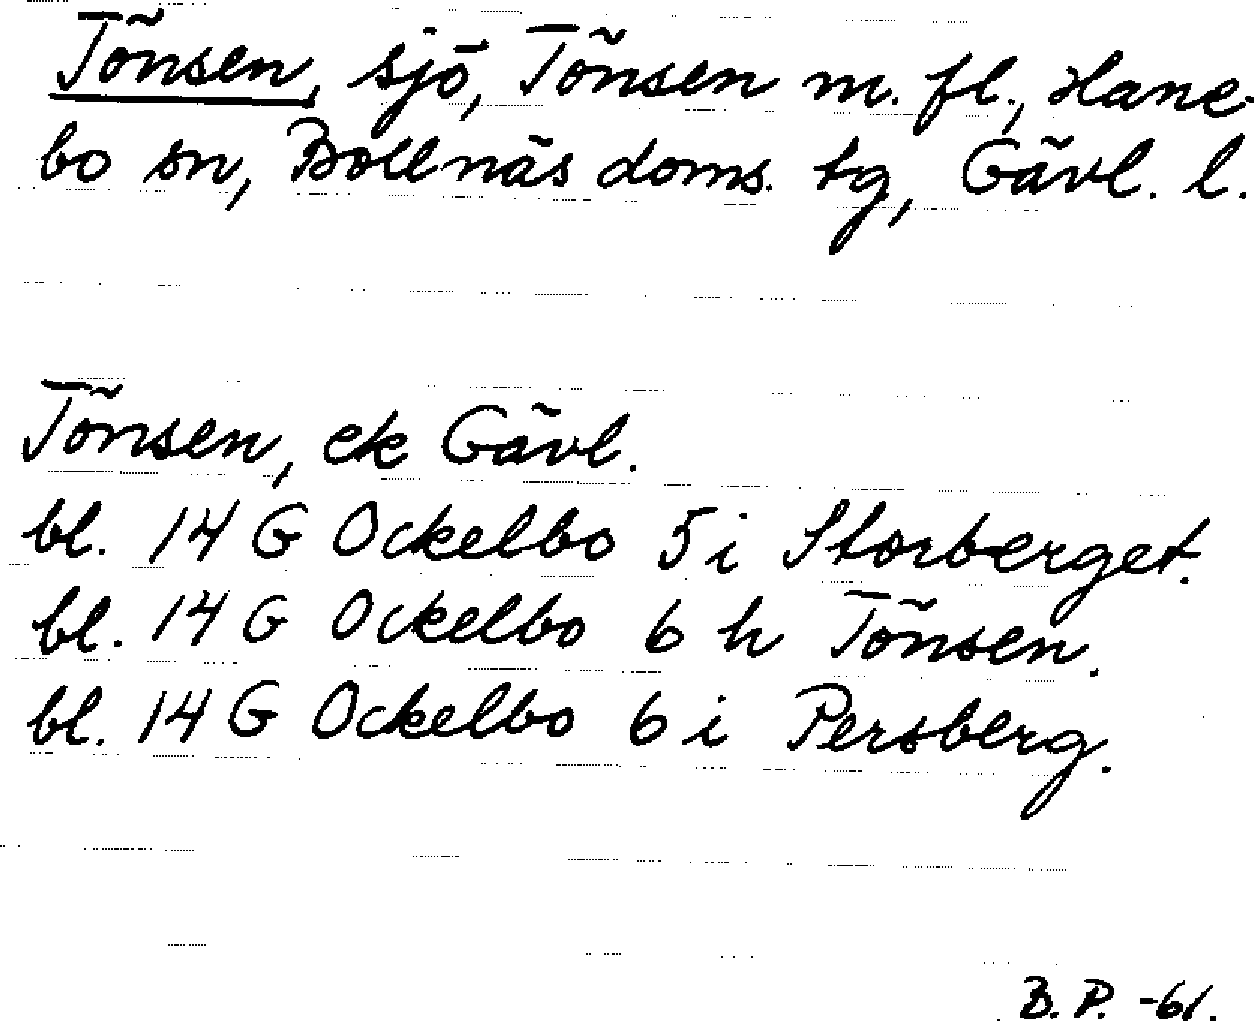 Tönsen, sjö, Tönsen m. fl., Hane-
bo sn, Bollnäs doms. tg, Gävl. l.
Tönsen, ek Gävl.
bl. 14 G Ockelbo 5 i Storberget.
bl. 14 G Ockelbo 6 h Tönsen.
bl. 14 G Ockelbo 6 i Persberg.
B. P. -61.